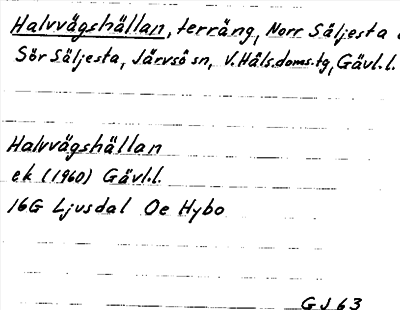 Halvvägshällan, terräng, Norr Säljesta
Sör Säljesta, Järvsö sn, V.Häls.doms.tg, Gävl.l.
Halvvägshällan
ek (1960) Gävl.l.
16G Ljusdal Oe Hybo
GJ 63